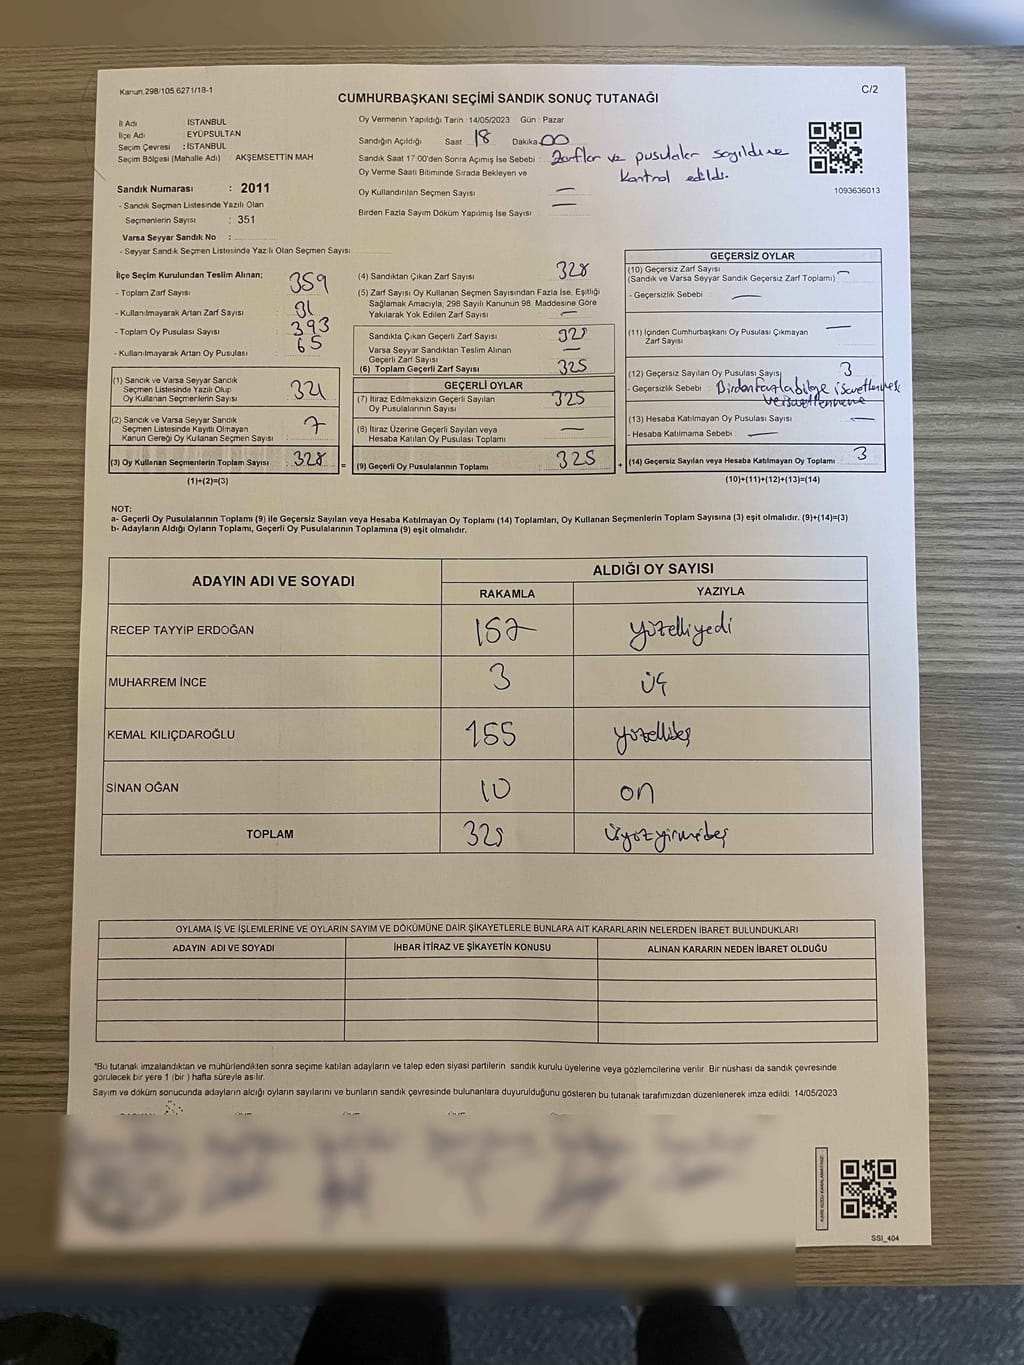 Kanun 298/105 6271/18-1
C/2
CUMHURBAŞKANI SEÇİMİ SANDIK SONUÇ TUTANAĞI
İl Adı : İSTANBUL
İlçe Adı : EYÜPSULTAN
Seçim Çevresi : İSTANBUL
Seçim Bölgesi (Mahalle Adı) : AKŞEMSETTİN MAH
Sandık Numarası : 2011
- Sandık Seçmen Listesinde Yazılı Olan
Seçmenlerin Sayısı : 351
Varsa Seyyar Sandık No :
- Seyyar Sandık Seçmen Listesinde Yazılı Olan Seçmen Sayısı
Oy Vermenin Yapıldığı Tarih : 14/05/2023 Gün : Pazar
Sandığın Açıldığı Saat 18 Dakika 00
Sandık Saat 17:00'den Sonra Açımış İse Sebebi : Zarflar ve pusulalar sayıldı ve
Oy Verme Saati Bitiminde Sırada Bekleyen ve kontrol edildi.
Oy Kullandırılan Seçmen Sayısı —
Birden Fazla Sayım Döküm Yapılmış İse Sayısı —
1093636013
İlçe Seçim Kurulundan Teslim Alınan;
- Toplam Zarf Sayısı 359
- Kullanılmayarak Artan Zarf Sayısı 31
- Toplam Oy Pusulası Sayısı 393
- Kullanılmayarak Artan Oy Pusulası 65
(1) Sandık ve Varsa Seyyar Sandık
Seçmen Listesinde Yazılı Olup
Oy Kullanan Seçmenlerin Sayısı 321
(2) Sandık ve Varsa Seyyar Sandık
Seçmen Listesinde Kayıtlı Olmayan
Kanun Gereği Oy Kullanan Seçmen Sayısı 7
(3) Oy Kullanan Seçmenlerin Toplam Sayısı 328 =
(1)+(2)=(3)
(4) Sandıktan Çıkan Zarf Sayısı 328
(5) Zarf Sayısı Oy Kullanan Seçmen Sayısından Fazla İse, Eşitliği
Sağlamak Amacıyla, 298 Sayılı Kanunun 98. Maddesine Göre
Yakılarak Yok Edilen Zarf Sayısı —
Sandıkta Çıkan Geçerli Zarf Sayısı 325
Varsa Seyyar Sandıktan Teslim Alınan
Geçerli Zarf Sayısı —
(6) Toplam Geçerli Zarf Sayısı 325
GEÇERLİ OYLAR
(7) İtiraz Edilmeksizin Geçerli Sayılan
Oy Pusulalarının Sayısı 325
(8) İtiraz Üzerine Geçerli Sayılan veya
Hesaba Katılan Oy Pusulası Toplamı —
(9) Geçerli Oy Pusulalarının Toplamı 325 +
GEÇERSİZ OYLAR
(10) Geçersiz Zarf Sayısı
(Sandık ve Varsa Seyyar Sandık Geçersiz Zarf Toplamı) —
- Geçersizlik Sebebi : —
(11) İçinden Cumhurbaşkanı Oy Pusulası Çıkmayan
Zarf Sayısı —
(12) Geçersiz Sayılan Oy Pusulası Sayısı 3
- Geçersizlik Sebebi : Birden fazla bölge işaretlemek
ve işaretlenmeme
(13) Hesaba Katılmayan Oy Pusulası Sayısı —
- Hesaba Katılmama Sebebi : —
(14) Geçersiz Sayılan veya Hesaba Katılmayan Oy Toplamı 3
(10)+(11)+(12)+(13)=(14)
NOT:
a- Geçerli Oy Pusulalarının Toplamı (9) ile Geçersiz Sayılan veya Hesaba Katılmayan Oy Toplamı (14) Toplamları, Oy Kullanan Seçmenlerin Toplam Sayısına (3) eşit olmalıdır. (9)+(14)=(3)
b- Adayların Aldığı Oyların Toplamı, Geçerli Oy Pusulalarının Toplamına (9) eşit olmalıdır.
ADAYIN ADI VE SOYADI
ALDIĞI OY SAYISI
RAKAMLA YAZIYLA
RECEP TAYYİP ERDOĞAN 157 yüzelliyedi
MUHARREM İNCE 3 üç
KEMAL KILIÇDAROĞLU 155 yüzellibeş
SİNAN OĞAN 10 on
TOPLAM 325 üçyüzyirmibeş
OYLAMA İŞ VE İŞLEMLERİNE VE OYLARIN SAYIM VE DÖKÜMÜNE DAİR ŞİKAYETLERLE BUNLARA AİT KARARLARIN NELERDEN İBARET BULUNDUKLARI
ADAYIN ADI VE SOYADI İHBAR İTİRAZ VE ŞİKAYETİN KONUSU ALINAN KARARIN NEDEN İBARET OLDUĞU
*Bu tutanak imzalandıktan ve mühürlendikten sonra seçime katılan adayların ve talep eden siyasi partilerin sandık kurulu üyelerine veya gözlemcilerine verilir. Bir nüshası da sandık çevresinde
görülecek bir yere 1 (bir) hafta süreyle asılır.
Sayım ve döküm sonucunda adayların aldığı oyların sayılarını ve bunların sandık çevresinde bulunanlara duyurulduğunu gösteren bu tutanak tarafımızdan düzenlenerek imza edildi. 14/05/2023
SSI_404